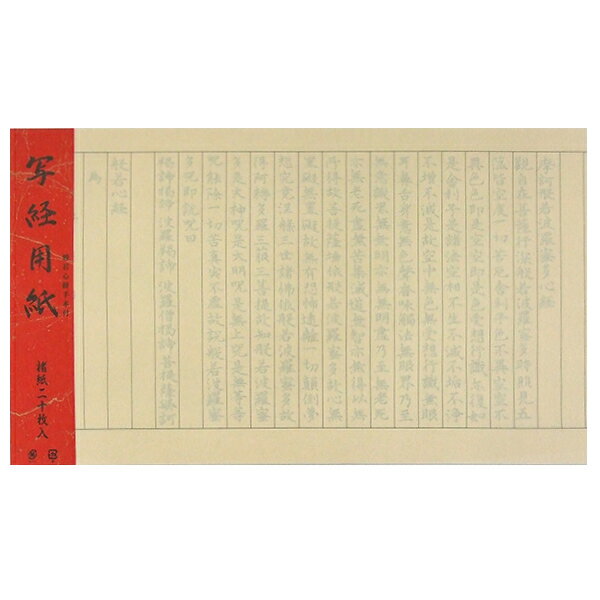 摩訶般若波羅蜜多心經
觀自在菩薩行深般若波羅蜜多時照見五
蘊皆空度一切苦厄舎利子色不異空空不
異色色即是空空即是色受想行識亦復如
是舎利子是諸法空相不生不滅不垢不浄
不増不減是故空中無色無受想行識無眼
耳鼻舌身意無色聲香味觸法無眼界乃至
無意識界無無明亦無無明盡乃至無老死
亦無老死盡無苦集滅道無智亦無得以無
所得故菩提薩埵依般若波羅蜜多故心無
罣礙無罣礙故無有恐怖遠離一切顛倒夢
想究竟涅槃三世諸佛依般若波羅蜜多故
得阿耨多羅三藐三菩提故知般若波羅蜜
多是大神呪是大明呪是無上呪是無等等
呪能除一切苦真実不虚故説般若波羅蜜
多呪即説呪曰
羯諦羯諦 波羅羯諦 波羅僧羯諦 菩提薩婆訶
般若心經
為
般若心経手本付
写経用紙
楮紙二十枚入